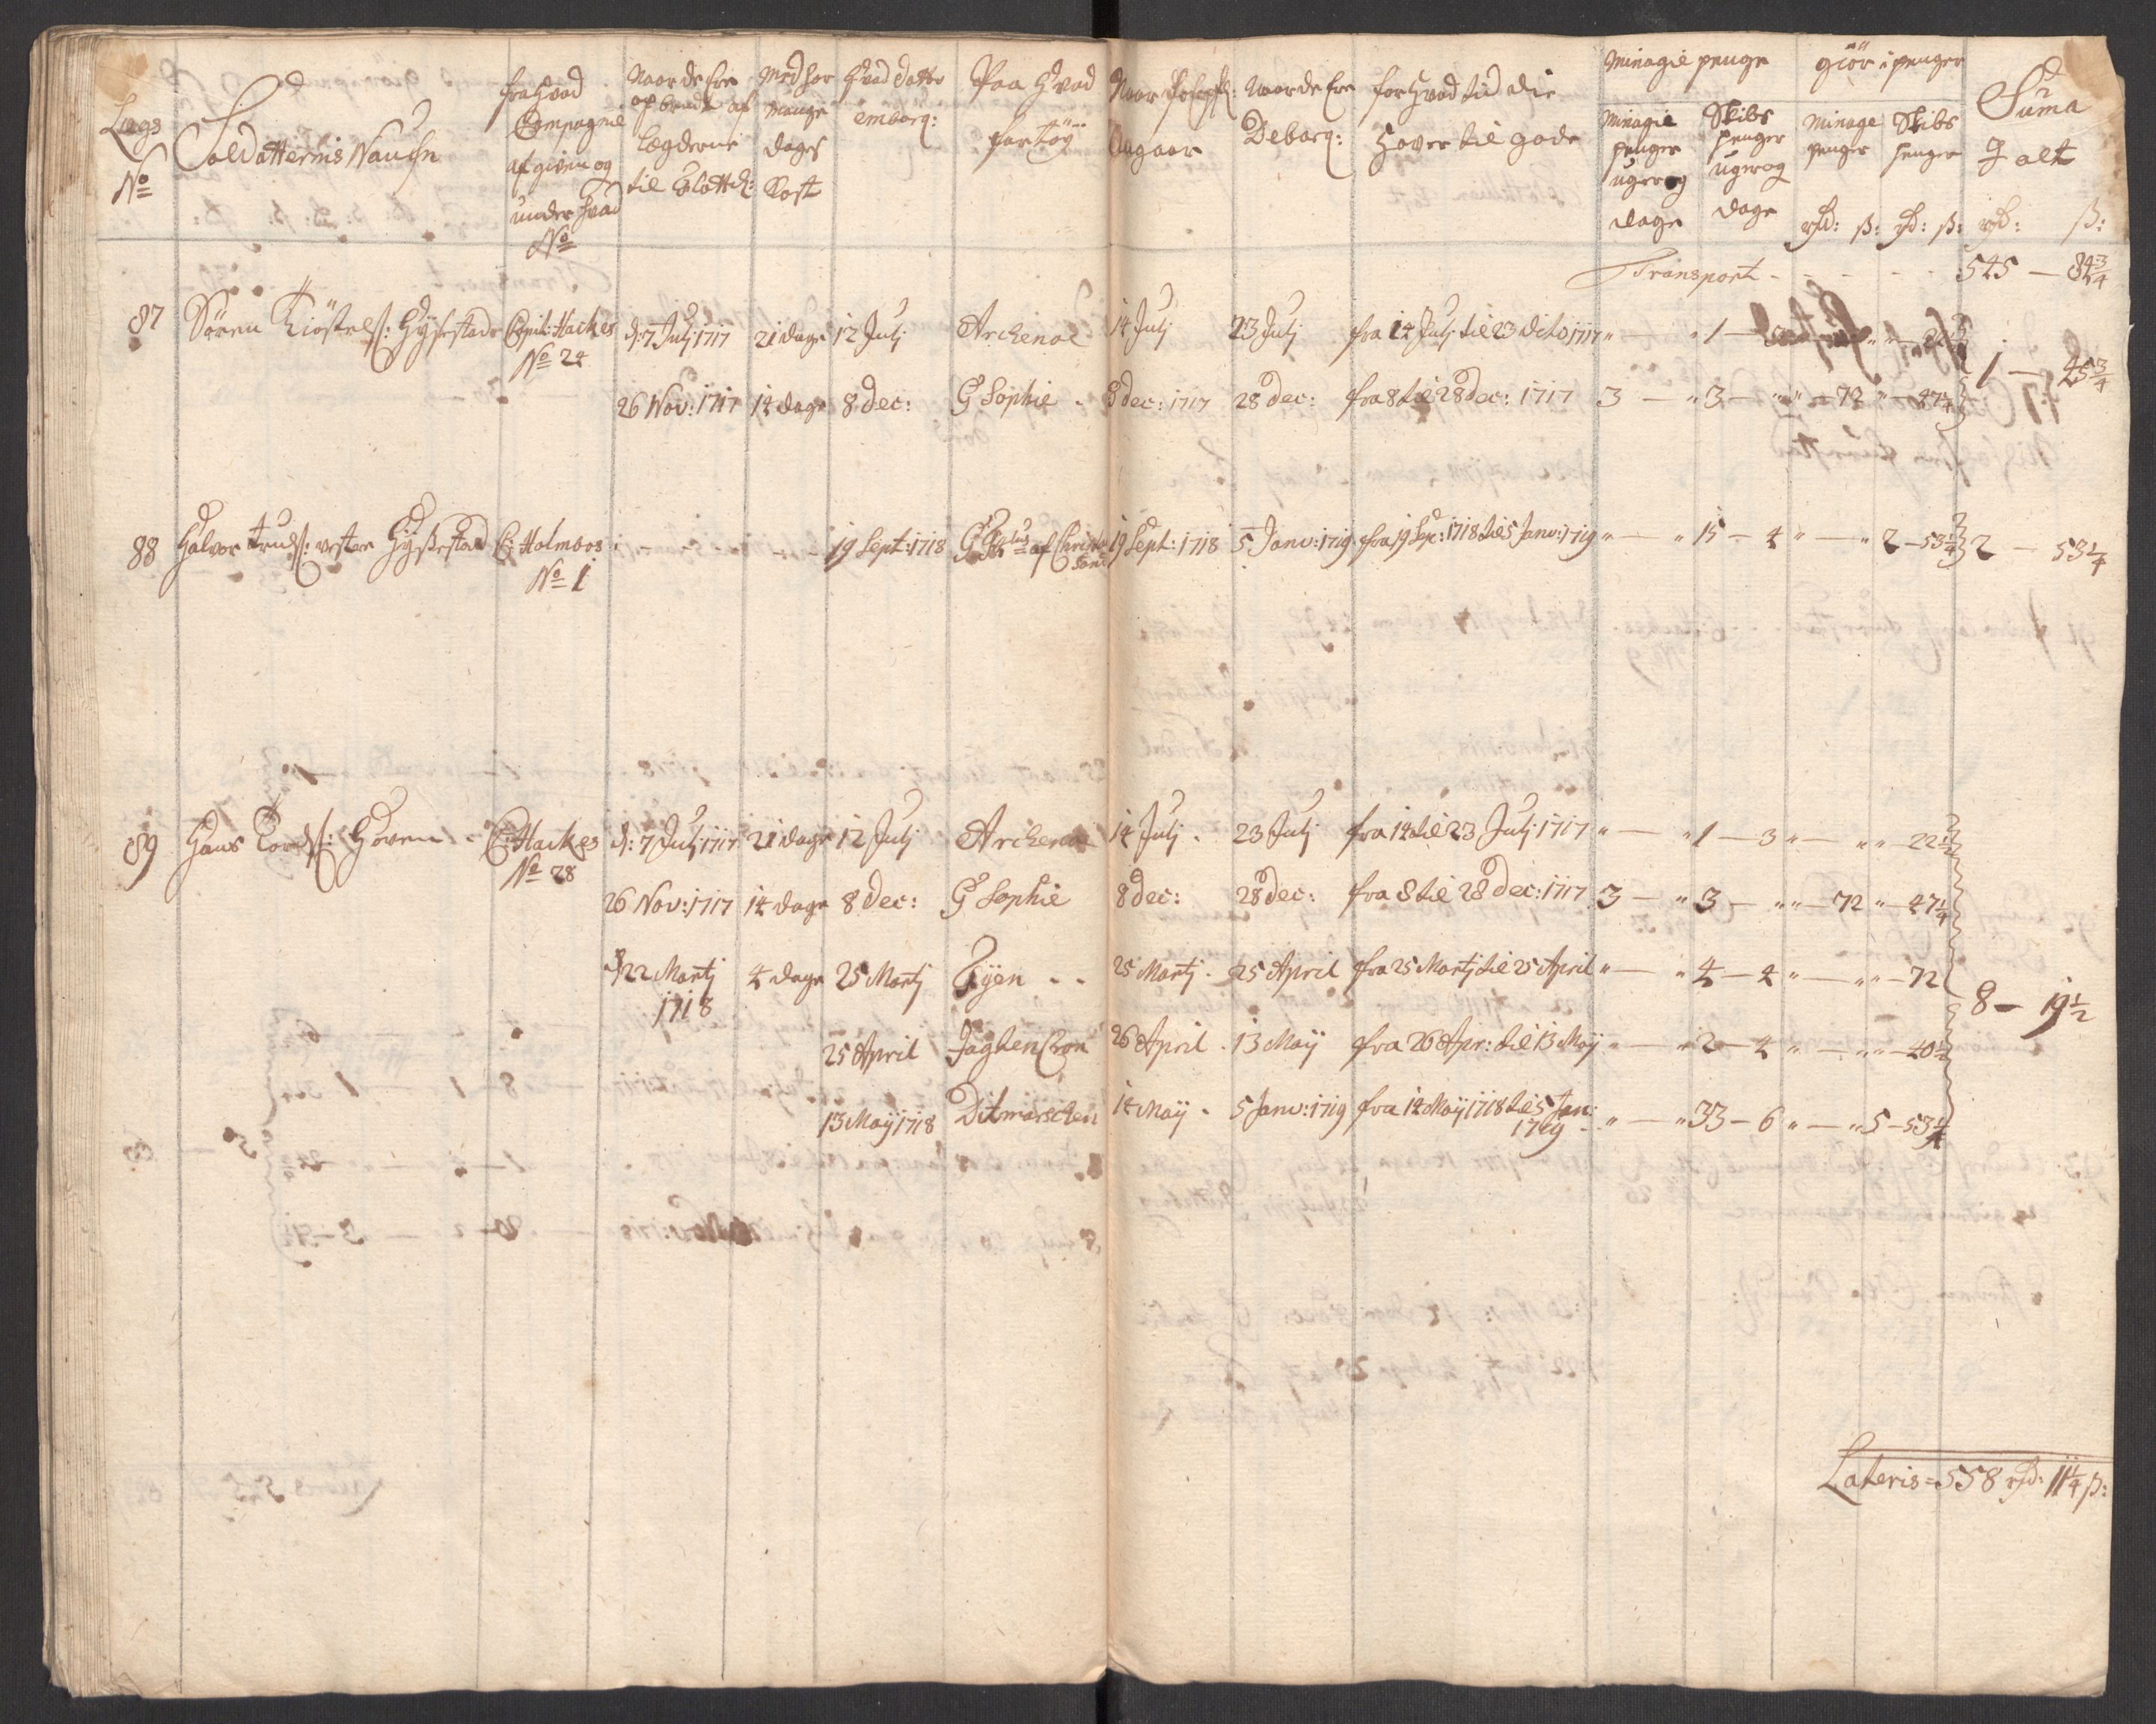 Lægs No
Soldatternis Naufn
fra hvad Compagnie afgiven og under hvad No
Naar de Ere opbrudt af Lægderne til
Med hor mange dages Kost
Hvad datto embarq:
Paa hvad fartöÿ
Naar angaar
Naar de Ere Debarq:
for hvad tid die hover til gode
Minagie penge
giör i penger
Minagie penger uger og dage
Skibs penger uger og dage
Minage penger rd: ß:
Skibs penger rd: ß:
Suma J alt rd: ß:
Transport - - - - - 545 — 84 3/4
87 Sören Kiöstels: Hÿsestade Capit: Hackes No 24 d: 7 Julj 1717 21 dage 12 Julj Archenoe 14 Julj 23 Julj fra 14 Julj til 23 dito 1717 " — " 1 — 3 " — " " — 22 1/2
26 Nov: 1717 14 dage 8 Dec: G Sophie 8 Dec: 1717 28 Dec: fra 8 til 28 Dec: 1717 3 — " 3 — " " — 72 " — 47 1/4
1 — 45 3/4
88 Halvor Truls: vester Hÿsestad C: Holmboes No 1 19 Sept: 1718 af Christiansand 19 Sept: 1718 5 Janv: 1719 fra 19 Sep: 1718 til 5 Janv: 1719 " — " 15 — 4 " — " 2 — 53 1/4 2 — 53 1/4
89 Hans Tords: Hoven C: Hackes No 28 d: 7 Julj 1717 21 dage 12 Julj Archenoe 14 Julj 23 Julj fra 14 til 23 Julj 1717 " — " 1 — 3 " — " " — 22 1/2
26 Nov: 1717 14 dage 8 Dec: G Sophie 8 Dec: 28 Dec: fra 8 til 28 Dec: 1717 3 — " 3 — " " — 72 " — 47 1/4
d 22 Martj 1718 4 dage 25 Martj Fÿen - - 25 Martj - 25 April fra 25 Martj til 25 April " — " 4 — 4 " — " " — 72
8 — 19 1/2
25 April Jagten Cron 26 April - 13 Maÿ fra 26 Apr: til 13 Maÿ " — " 2 — 4 " — " " — 40 1/2
13 Maÿ 1718 Ditmarschen 14 Maÿ - 5 Janv: 1719 fra 14 Maÿ 1718 til 5 Jan: 1719 " — " 33 — 6 " — " 5 — 53 1/4
Lateris = 558 rd: 11 1/4 ß: